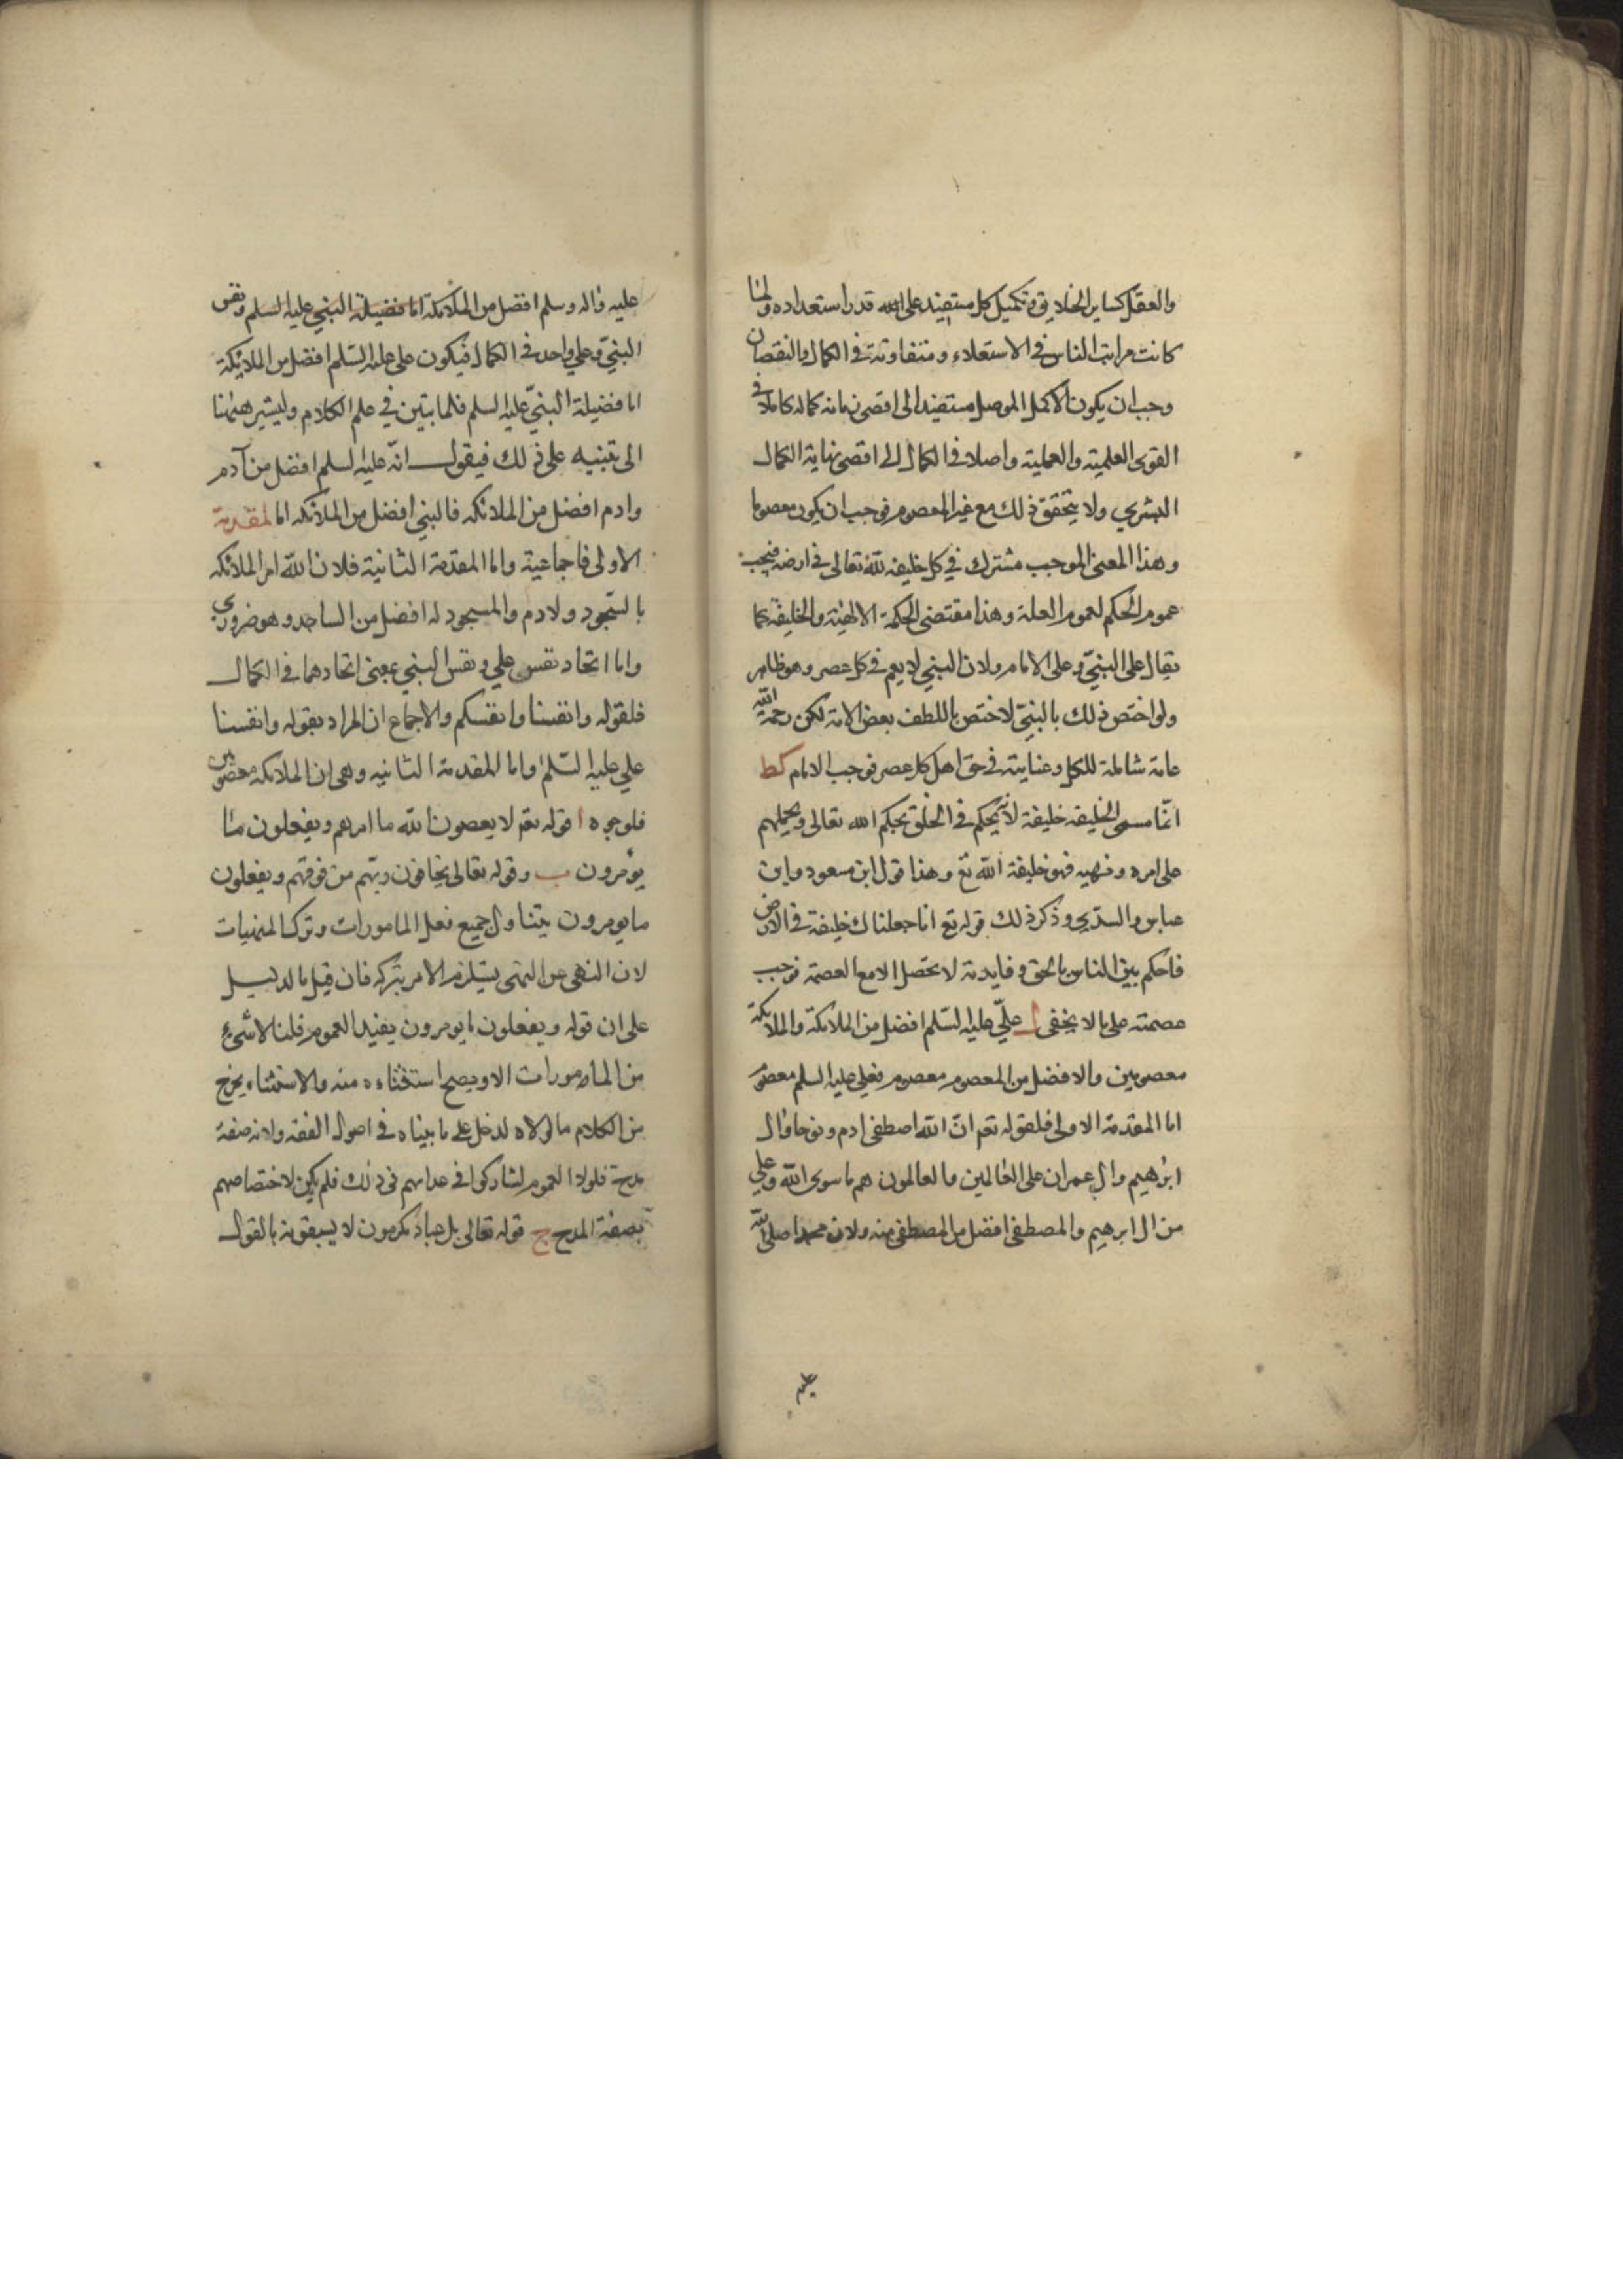 والعقل كساير الخلايق وتكميل كل مستفيد على قدر استعداده ولما
كانت مراتب الناس في الاستعلاء ومتفاوتة في الكمال والنقصان
وجب ان يكون الاكمل الموصل مستفيد الى اقصى نهاية كماله كاملا في
القوى العلمية والعملية واصلا في الكمال الى اقصى نهاية الكمال
البشري ولا يتحقق ذلك مع غير المعصوم فوجب ان يكون معصوما
وهذا المعنى الموجب مشترك في كل خليفه لله تعالى في ارضه فيجب
عموم الحكم لعموم العلة وهذا مقتضى الحكمة الالهية والخليفة كما
يقال على النبي وعلى الامام ولان النبي لا يعم في كل عصر وهو ظاهر
ولو اختص ذلك بالنبي لاختص باللطف بعض الامة لكن رحمة الله
عامة شاملة للكل وعنايته في حق اهل كل عصر فوجب الامام كط
انما سمى الخليفه خليفة لانه يحكم في الخلق بحكم الله تعالى ويحملهم
على امره ونهيه فهو خليفة الله تع وهذا قول ابن مسعود وابن
عباس والسدي وذكر ذلك قوله تع انا جعلناك خليفة في الارض
فاحكم بين الناس بالحق وفايدته لا تحصل الا مع العصمة فوجب
عصمته على ما لا يخفى ل علي عليه السلم افضل من الملائكة والملائكة
معصومين والافضل من المعصوم معصوم فعلي عليه السلم معصوم
اما المقدمة الاولى فلقوله تعم ان الله اصطفى ادم ونوحا وال
ابرهيم وال عمران على العالمين والعالمون هم ما سوى الله وعلي
من ال ابرهيم والمصطفى افضل من المصطفى منه ولان محمدا صلى الله
عليه
عليه واله وسلم افضل من الملائكة اما فضيلة النبي عليه السلم ونفس
النبي وعلي واحد في الكمال فيكون علي عليه السلم افضل من الملائكة
اما فضيلة النبي عليه السلم فلما بتين في علم الكلام وليشير ههنا
الى تنبيه على ذلك فيقول انه عليه السلم افضل من آدم
وادم افضل من الملائكه فالنبي افضل من الملائكه اما المقدمة
الاولى فاجماعية واما المقدمة الثانية فلان الله امر الملائكه
بالسجود ولادم والمسجود له افضل من الساجد وهو ضروري
واما اتحاد نفس علي ونفس النبي بمعنى اتحادهما في الكمال
فلقوله وانفسنا وانفسكم والاجماع ان المراد بقوله وانفسنا
علي عليه السلم واما المقدمة الثانيه وهى ان الملائكه معصومين
فلوجوه ا قوله تعم لا يعصون الله ما امرهم ويفعلون ما
يؤمرون ب وقوله تعالى يخافون ربهم من فوقهم ويفعلون
ما يومرون يتناول جميع فعل المامورات وترك المنهيات
لان النهى عن الشى يستلزم الامر بتركه فان قيل ما الدليل
على ان قوله ويفعلون ما يومرون يفيد العموم قلنا لا شئ
من المامورات الا ويصح استثناءه منه والاستثناء يخرج
من الكلام ما لولاه لدخل على ما بيناه في اصول الفقه ولانه صفة
مدحة فلولا العموم لشاركوا في عداهم في ذلك فلم يكن لاختصاصهم
بصفة المدح ج قوله تعالى بل عباد مكرمون لا يسبقونه بالقول